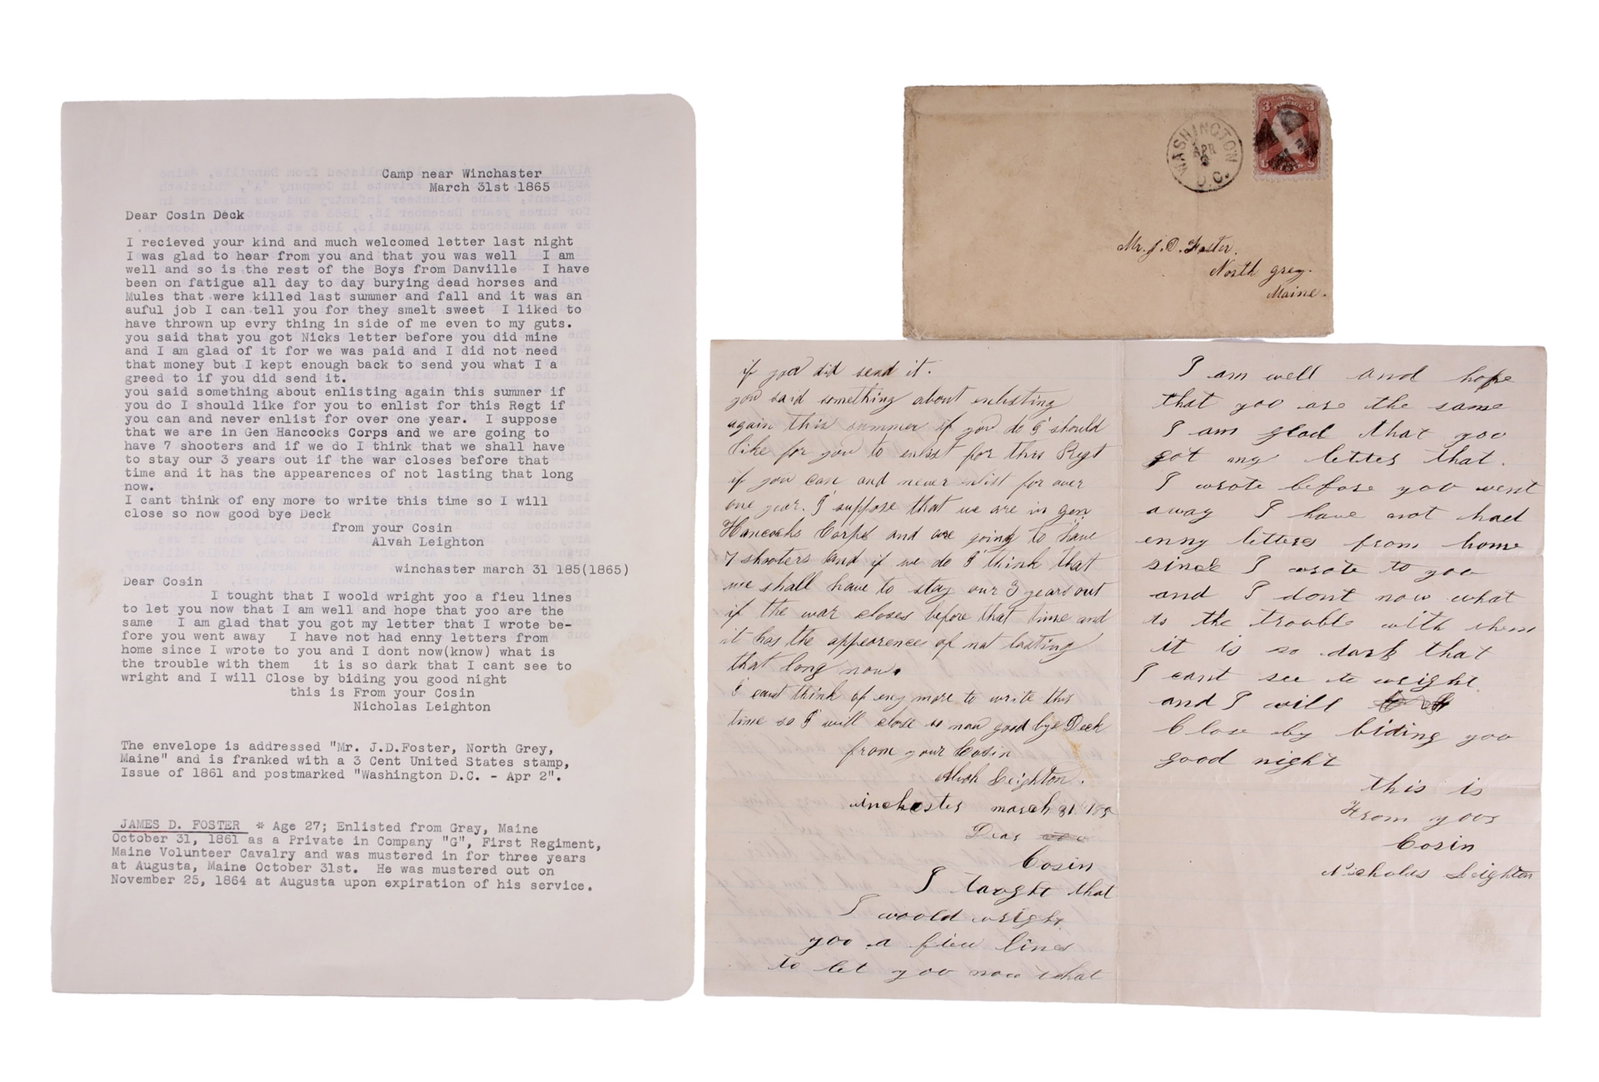 Camp near Winchaster
March 31st 1865
Dear Cosin Deck
I recieved your kind and much welcomed letter last night
I was glad to hear from you and that you was well   I am
well and so is the rest of the Boys from Danville   I have
been on fatigue all day to day burying dead horses and
Mules that were killed last summer and fall and it was an
auful job I can tell you for they smelt sweet  I liked to
have thrown up evry thing in side of me even to my guts.
you said that you got Nicks letter before you did mine
and I am glad of it for we was paid and I did not need
that money but I kept enough back to send you what I a
greed to if you did send it.
you said something about enlisting again this summer if
you do I should like for you to enlist for this Regt if
you can and never enlist for over one year.  I suppose
that we are in Gen Hancocks Corps and we are going to
have 7 shooters and if we do I think that we shall have
to stay our 3 years out if the war closes before that
time and it has the appearences of not lasting that long
now.
I cant think of eny more to write this time so I will
close so now good bye Deck
from your Cosin
Alvah Leighton
winchaster march 31 185(1865)
Dear Cosin
I tought that I woold wright yoo a fieu lines
to let you now that I am well and hope that yoo are the
same   I am glad that you got my letter that I wrote be-
fore you went away   I have not had enny letters from
home since I wrote to you and I dont now(know) what is
the trouble with them   it is so dark that I cant see to
wright and I will Close by biding you good night
this is From your Cosin
Nicholas Leighton
The envelope is addressed "Mr. J.D.Foster, North Grey,
Maine" and is franked with a 3 Cent United States stamp,
Issue of 1861 and postmarked "Washington D.C. - Apr 2".
JAMES D. FOSTER * Age 27; Enlisted from Gray, Maine
October 31, 1861 as a Private in Company "G", First Regiment,
Maine Volunteer Cavalry and was mustered in for three years
at Augusta, Maine October 31st.  He was mustered out on
November 25, 1864 at Augusta upon expiration of his service.
WASHINGTON
APR
D.C.
3 3
Mr. J. D. Foster.
North grey.
Maine.
if yoo did send it.
you said something about enlisting
again this summer if you do I should
like for you to enlist for this Regt
if you can and never enlist for over
one year. I suppose that we are in gen
Hancocks Corps and are going to have
7 shooters and if we do I think that
we shall have to stay our 3 years out
if the war closes before that time and
it has the appearences of not lasting
that long now.
I cant think of eny more to write this
time so I will close so now good bye Deck
from your Cosin
Alvah Leighton.
winchester march 31 185
Dear
Cosin
I tought that
I woold wright
yoo a fieu lines
to let yoo now that
I am well and hope
that yoo are the same
I am glad that yoo
got my letter that.
I wrote before yoo went
away I have not had
enny letters from home
since I wrote to yoo
and I dont now what
is the trouble with them
it is so dark that
I cant see to wright
and I will
Close by biding yoo
good night
this is
From yoor
Cosin
Nicholas Leighton